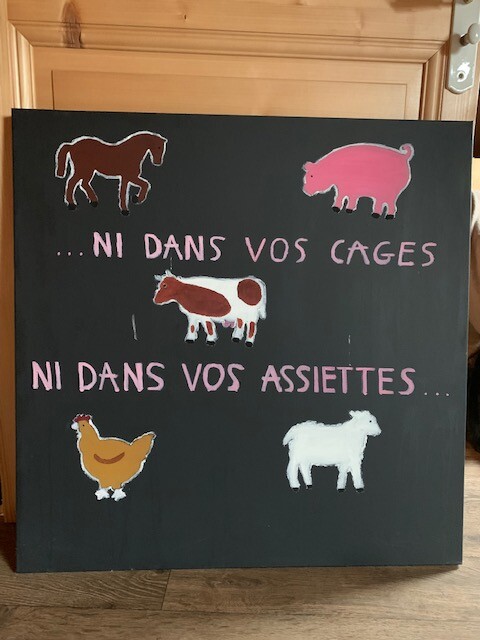 ...NI DANS VOS CAGES
NI DANS VOS ASSIETTES...